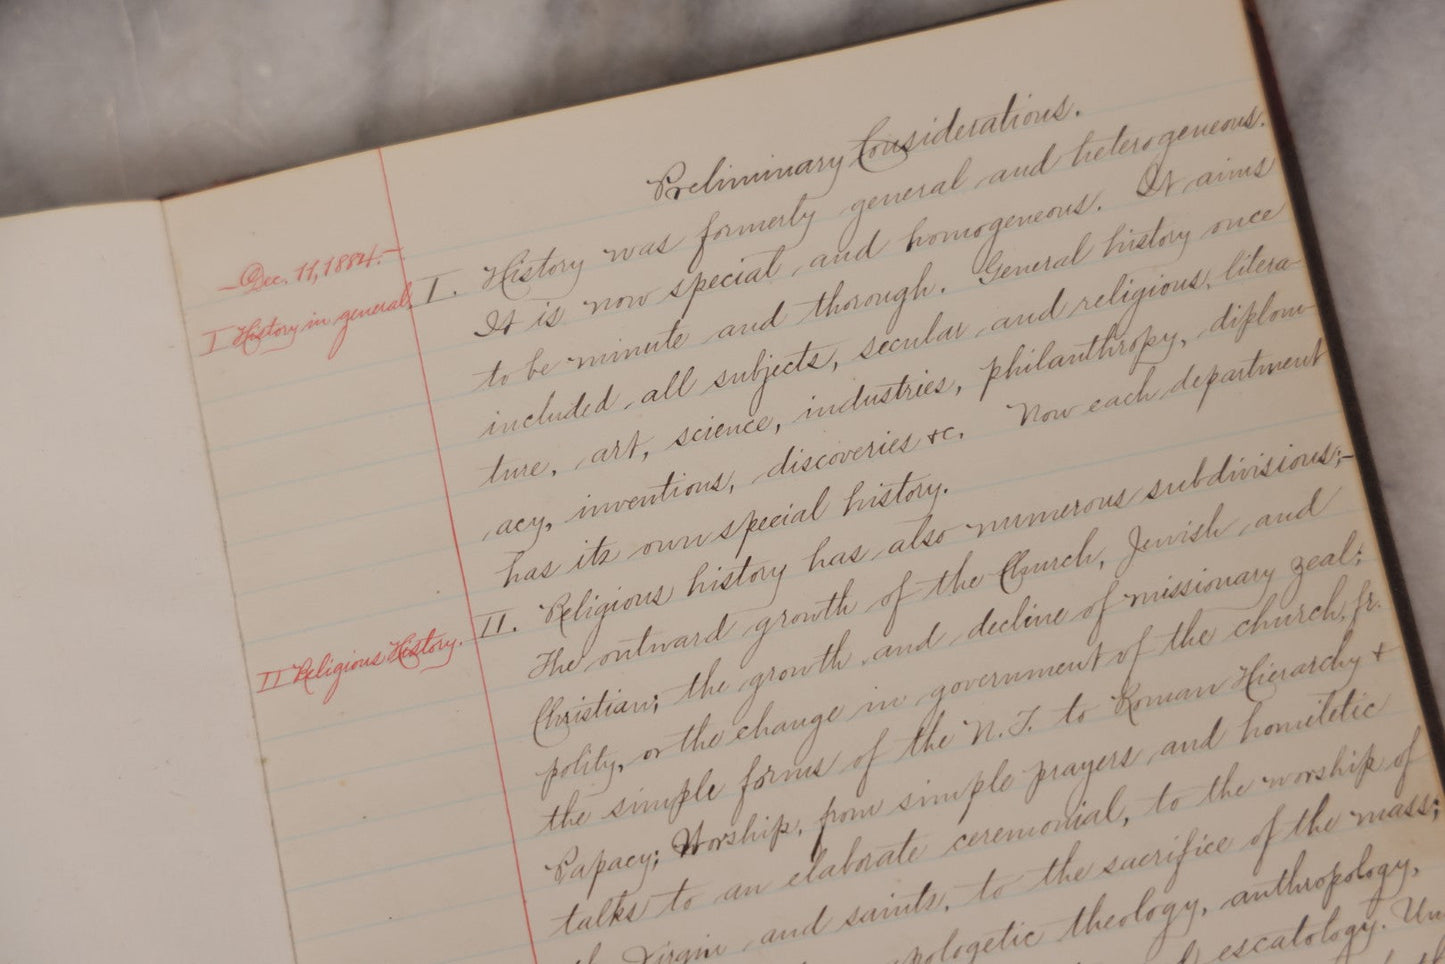 Preliminary Considerations.
Dec. 11, 1884.—
I History in general.
I. History was formerly general and heterogeneous.
It is now special and homogeneous. It aims
to be minute and thorough. General history once
included all subjects, secular and religious, litera-
ture, art, science, industries, philanthropy, diplom-
acy, inventions, discoveries &c. Now each department
has its own special history.
II Religious History.
II. Religious history has also numerous subdivisions;—
The outward growth of the Church, Jewish and
Christian; the growth and decline of missionary zeal;
polity, or the change in government of the church, fr.
the simple forms of the N.T. to Roman Hierarchy &
Papacy; Worship, from simple prayers and homiletic
talks to an elaborate ceremonial, to the worship of
Virgin and saints, to the sacrifice of the mass;
apologetic theology, anthropology,
escatology.